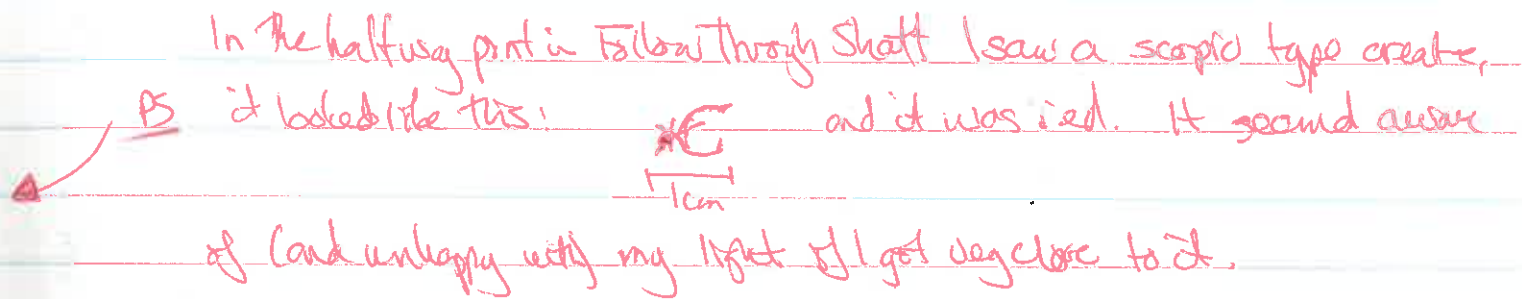 In the halfway point in Follow Through Shaft I saw a scorpio type creature,
PS it looked like this: and it was red. It seemed aware
1cm
of (and unhappy with) my light if I got very close to it.